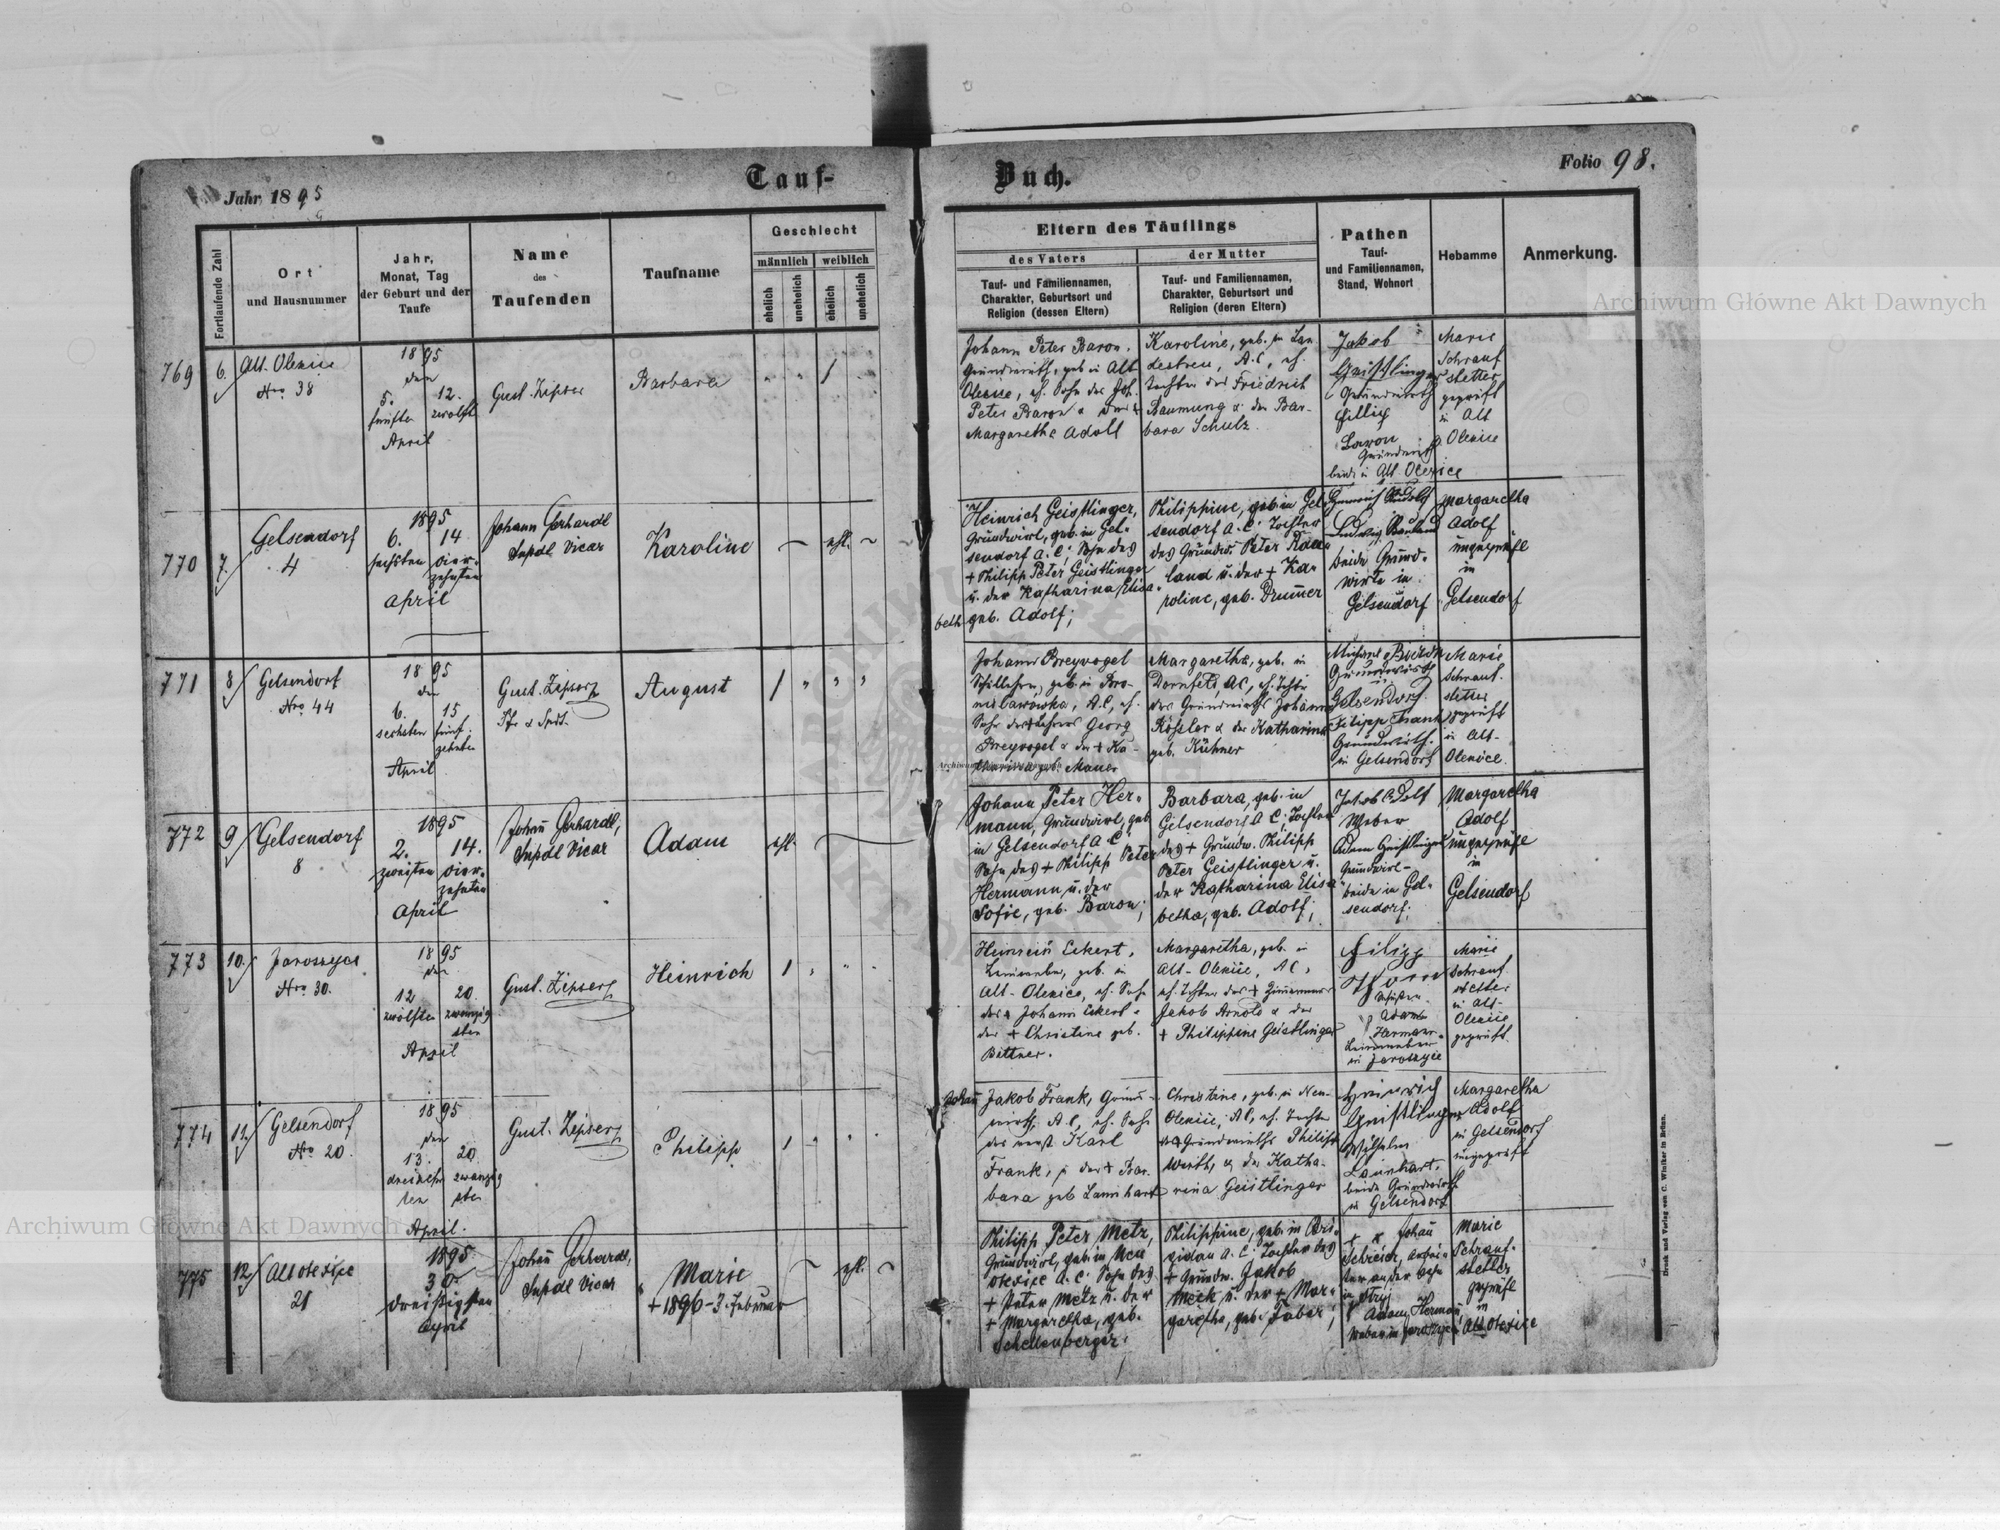 Jahr 1895
Tauf-
Buch.
Folio 98.
Fortlaufende Zahl
Ort
und Hausnummer
Jahr,
Monat, Tag
der Geburt und der
Taufe
Name
des
Taufenden
Taufname
Geschlecht
männlich
weiblich
ehelich
unehelich
ehelich
unehelich
Eltern des Täuflings
des Vaters
der Mutter
Tauf- und Familiennamen,
Charakter, Geburtsort und
Religion (dessen Eltern)
Tauf- und Familiennamen,
Charakter, Geburtsort und
Religion (deren Eltern)
Pathen
Tauf-
und Familiennamen,
Stand, Wohnort
Hebamme
Anmerkung.
769
6.
Alt-Olexice
Nro 38
1895
den
5. 12.
fünften zwölft
April
Gust. Zipser
Barbara
Johann Peter Baron,
Grundwirth, geb. in Alt
Olexice, eh. Sohn des Joh.
Peter Baron & der
Margaretha Adolf
Karoline, geb. in Lan
destreu, A.C., eh.
Tochter des Friedrich
Baumung & der Bar-
bara Schulz
Jakob
Geistlinger
Grundwirth
Baron
Grundwirth
beide in Alt-Olexice
Marie
Schrauf
stetter
geprüft
in Alt
Olexice
770
7.
Gelsendorf
4
1895
6. 14
sechsten vier-
zehnten
April
Johann Gerhardt
Supdl Vicar
Karoline
ehl.
Heinrich Geistlinger,
Grundwirt, geb. in Gel-
sendorf A.C; Sohn des
+ Philipp Peter Geistlinger
u. der Katharina Elisa-
beth geb. Adolf;
Philippine, geb. in Gel-
sendorf A.C. Tochter
des Grundw. Peter Rau-
land u. der + Ka-
roline, geb. Drummer
Heinrich Rudolf
Ludwig Rauland
beide Grund-
wirte in
Gelsendorf
Margaretha
Adolf
ungeprüft
in
Gelsendorf
771
8
Gelsendorf
Nro 44
1895
den
6. 15
sechsten fünf-
zehnten
April
Gust. Zipser
Pfr & Spdt.
August
Johann Breyvogel
geb. in Bro-
nislawowka, A.C., eh.
Sohn des + Lehrers Georg
Breyvogel & der + Ka-
tharina geb. Mauer
Margaretha, geb. in
Dornfeld, AC, eh. Tochter
des Grundwirths Johann
Kössler & der Katharina
geb. Kühner
Grundwirth
Gelsendorf.
Filipp Frank
Grundwirth
in Gelsendorf
Marie
Schrauf-
stetter
geprüft
in Alt-
Olexice.
772
9
Gelsendorf
8
1895
2. 14.
zweiten vier-
zehnten
April
Johann Gerhardt,
Supdl Vicar
Adam
ehl.
Johann Peter Her-
mann, Grundwirt, geb.
in Gelsendorf A C
Sohn des + Philipp Peter
Hermann u. der
Sofie, geb. Baron;
Barbara, geb. in
Gelsendorf A C; Tochter
des + Grundw. Philipp
Peter Geistlinger u.
der Katharina Elisa-
betha, geb. Adolf;
Jakob Adolf
Weber
Adam Geistlinger
Grundwirt-
beide in Gel-
sendorf;
Margaretha
Adolf
ungeprüft
in
Gelsendorf
773
10.
Jaroszyce
Nro 30.
1895
den
12 20.
zwölften zwanzig
sten
April
Gust. Zipser
Heinrich
Heinrich Eckert,
Leinweber, geb. in
Alt-Olexice, eh. Sohn
des Johann Eckert &
der + Christine geb.
Bittner.
Margaretha, geb. in
Alt-Olexice, AC,
eh. Tochter des + Zimmermanns
Jakob Arnold & der
+ Philippine Geistlinger
Filipp
Adam
Hermann
Leinweber
in Jaroszyce
Marie
Schrauf
stetter
in Alt-
Olexice
geprüft.
774
11.
Gelsendorf
No 20.
1895
den
13. 20.
dreizehn zwanzig
ten sten
April.
Gust. Zipser
Philipp
Johann Jakob Frank, Grund-
wirth, A.C, eh. Sohn
des verst. Karl
Frank, & der + Bar-
bara geb Laninhart
Christine, geb. in Neu-
Olexice, AC, eh. Tochter
des + Grundwirths Philipp
Wirth, & der Katha-
rina Geistlinger
Heinrich
Geistlinger
Wilhelm
beide Grundwirth
in Gelsendorf
Margaretha
Adolf
in Gelsendorf
ungeprüft
775
12
Alt olexice
21
1895
30.
dreißigsten
April
Johann Gerhardt,
Supdl Vicar
Marie
+ 1896-3. Februar
ehl.
Philipp Peter Metz,
Grundwirt, geb. in Neu
olexice A.C. Sohn des
+ Peter Metz u. der
+ Margaretha, geb.
Schellenberger.
Philippine, geb. in Bri-
gidau A. C. Tochter des
+ Grundw. Jakob
Meck u. der + Mar-
garetha, geb. Faber;
Johann
Schreier, Arbei-
ter an der Bahn
in Stryj
Adam Hermann,
Weber in Jaroszyce
Marie
Schrauf-
stetter
geprüft
in
Alt Olexice
Druck und Verlag von C. Winiker in Brünn.
Archiwum Główne Akt Dawnych
Archiwum Główne Akt Dawnych